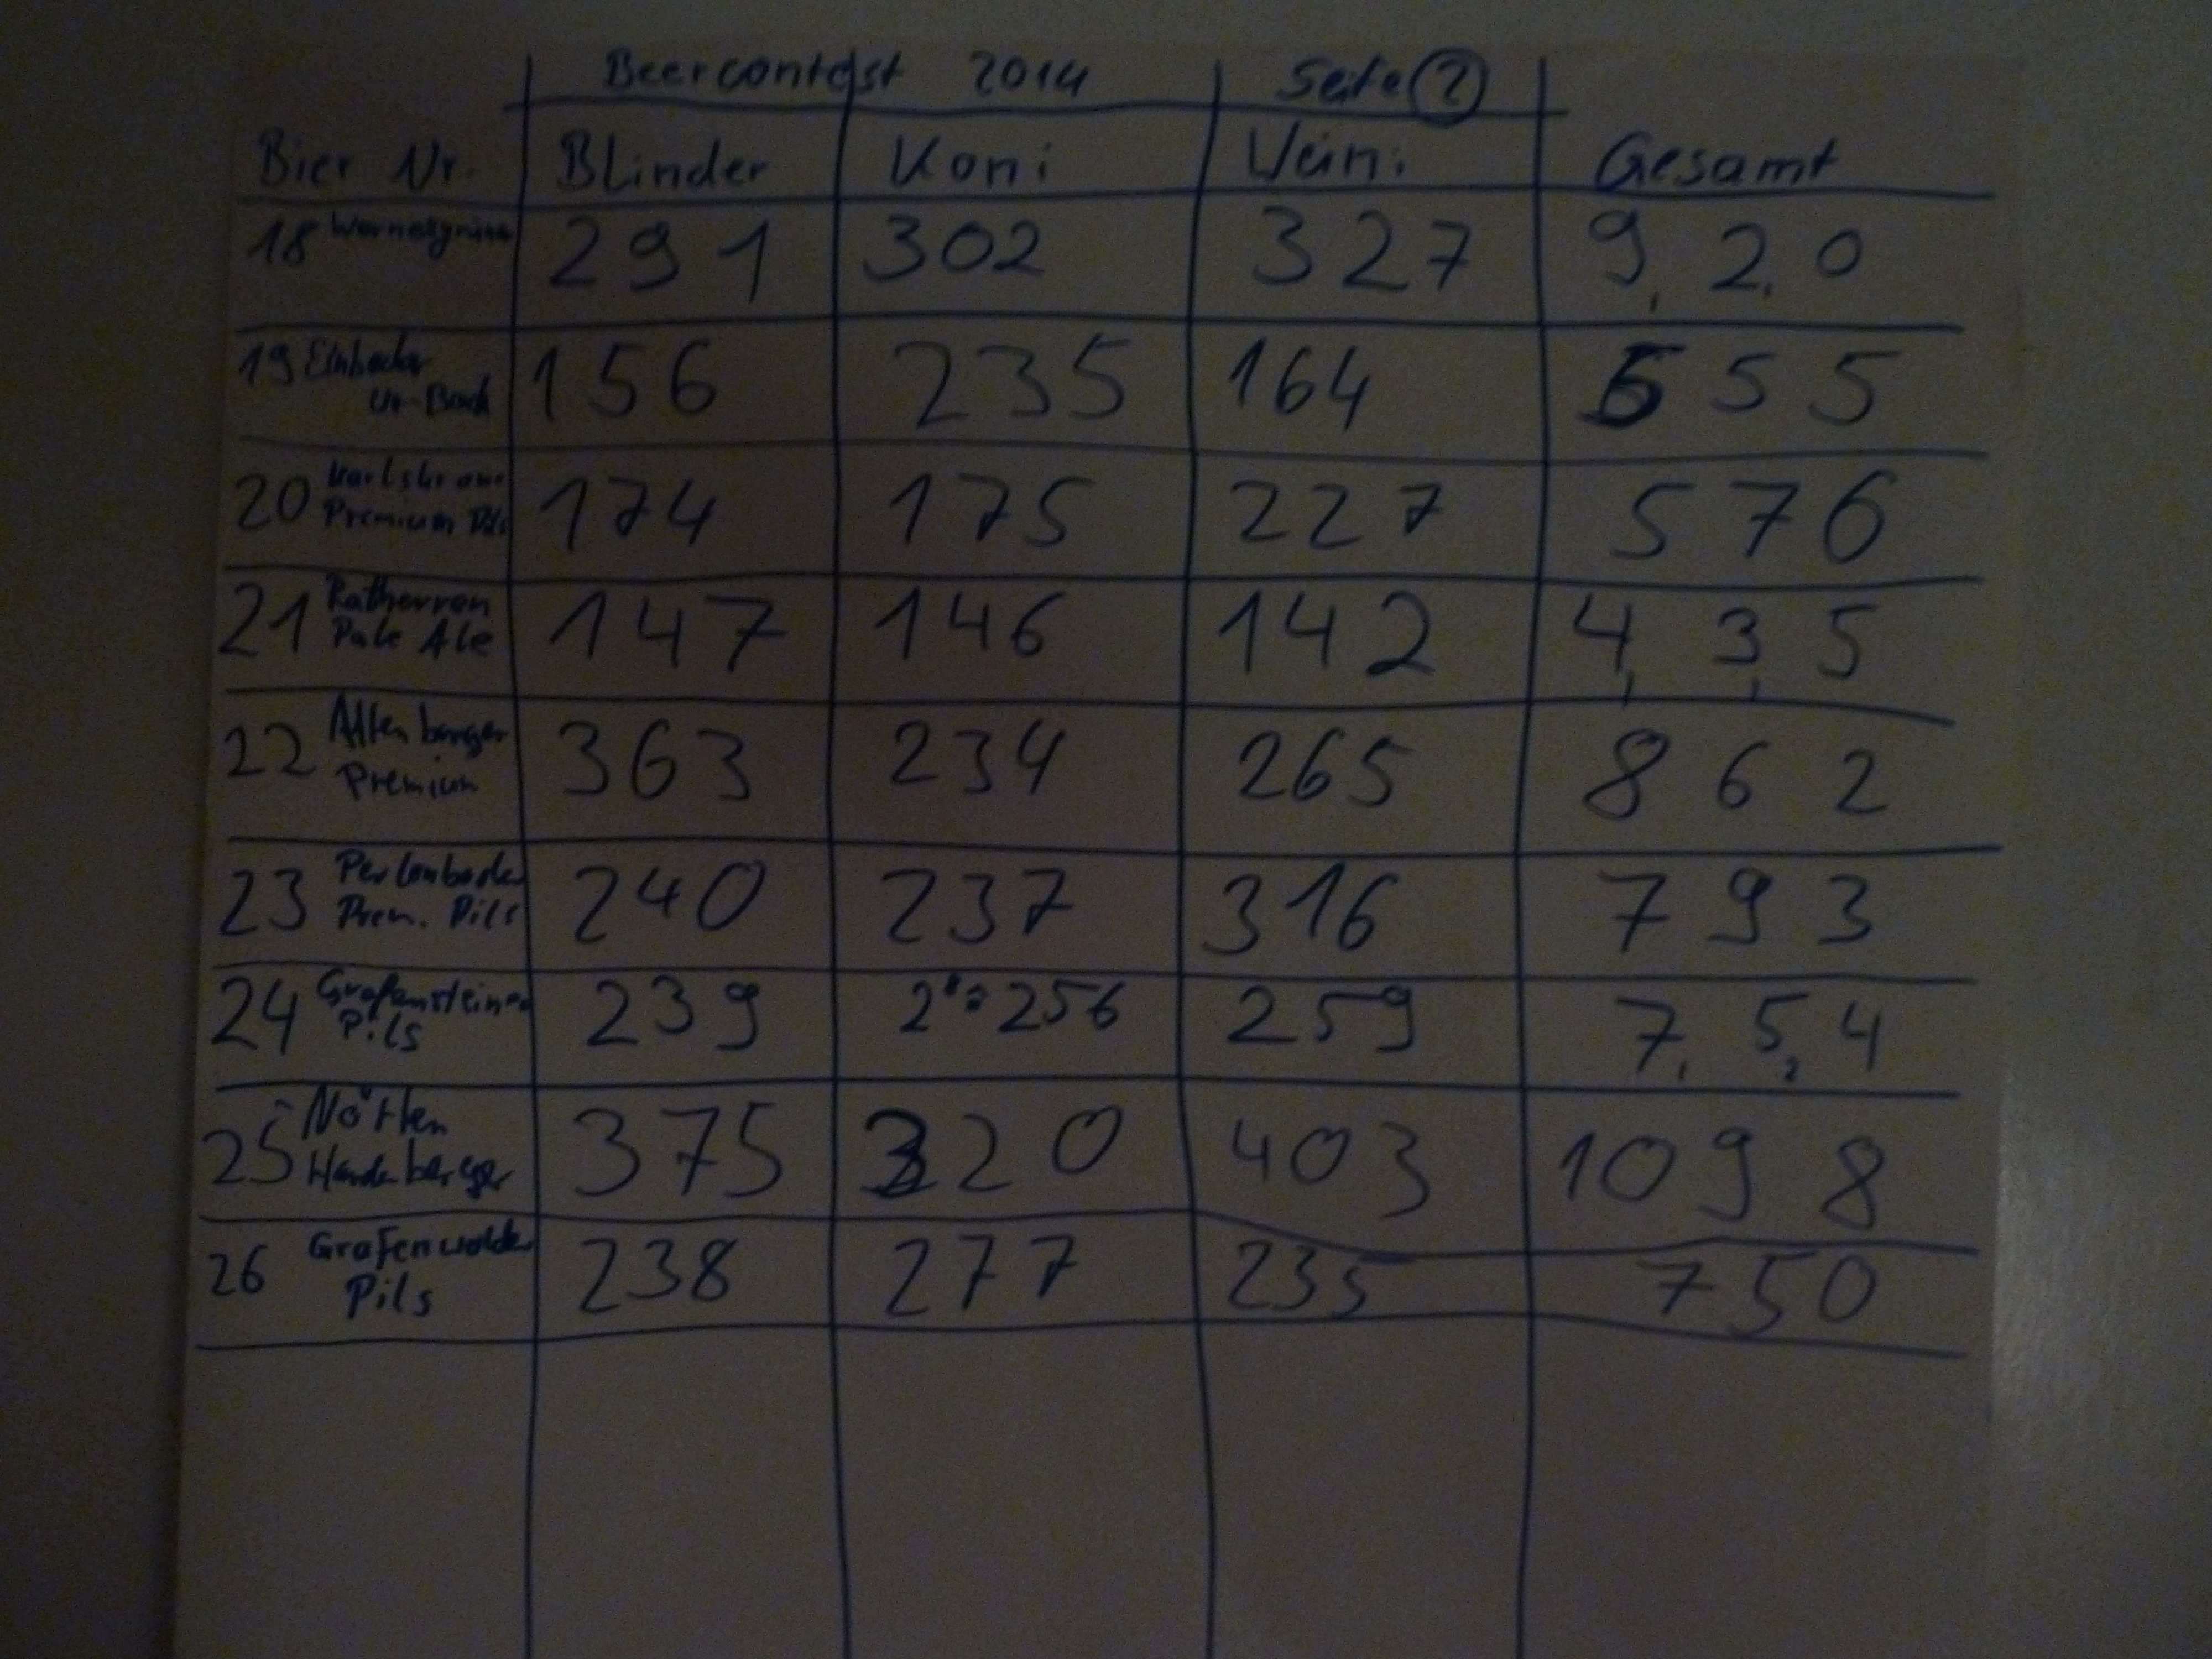 Beercontest 2014 Seite 2
Bier Nr. Blinder Koni Weini Gesamt
18 Wernesgrüner 291 302 327 920
19 Einbecker 156 235 164 555
Ur-Bock
20 Karlskrone 174 175 227 576
Premium Pils
21 Ratherren 147 146 142 435
Pale Ale
22 Altenburger 363 234 265 862
Premium
23 Perlenbacher 240 237 316 793
Prem. Pils
24 Grafensteiner 239 2⁸=256 259 754
Pils
25 Nörten 375 320 403 1098
Hardenberger
26 Grafenwalder 238 277 235 750
Pils